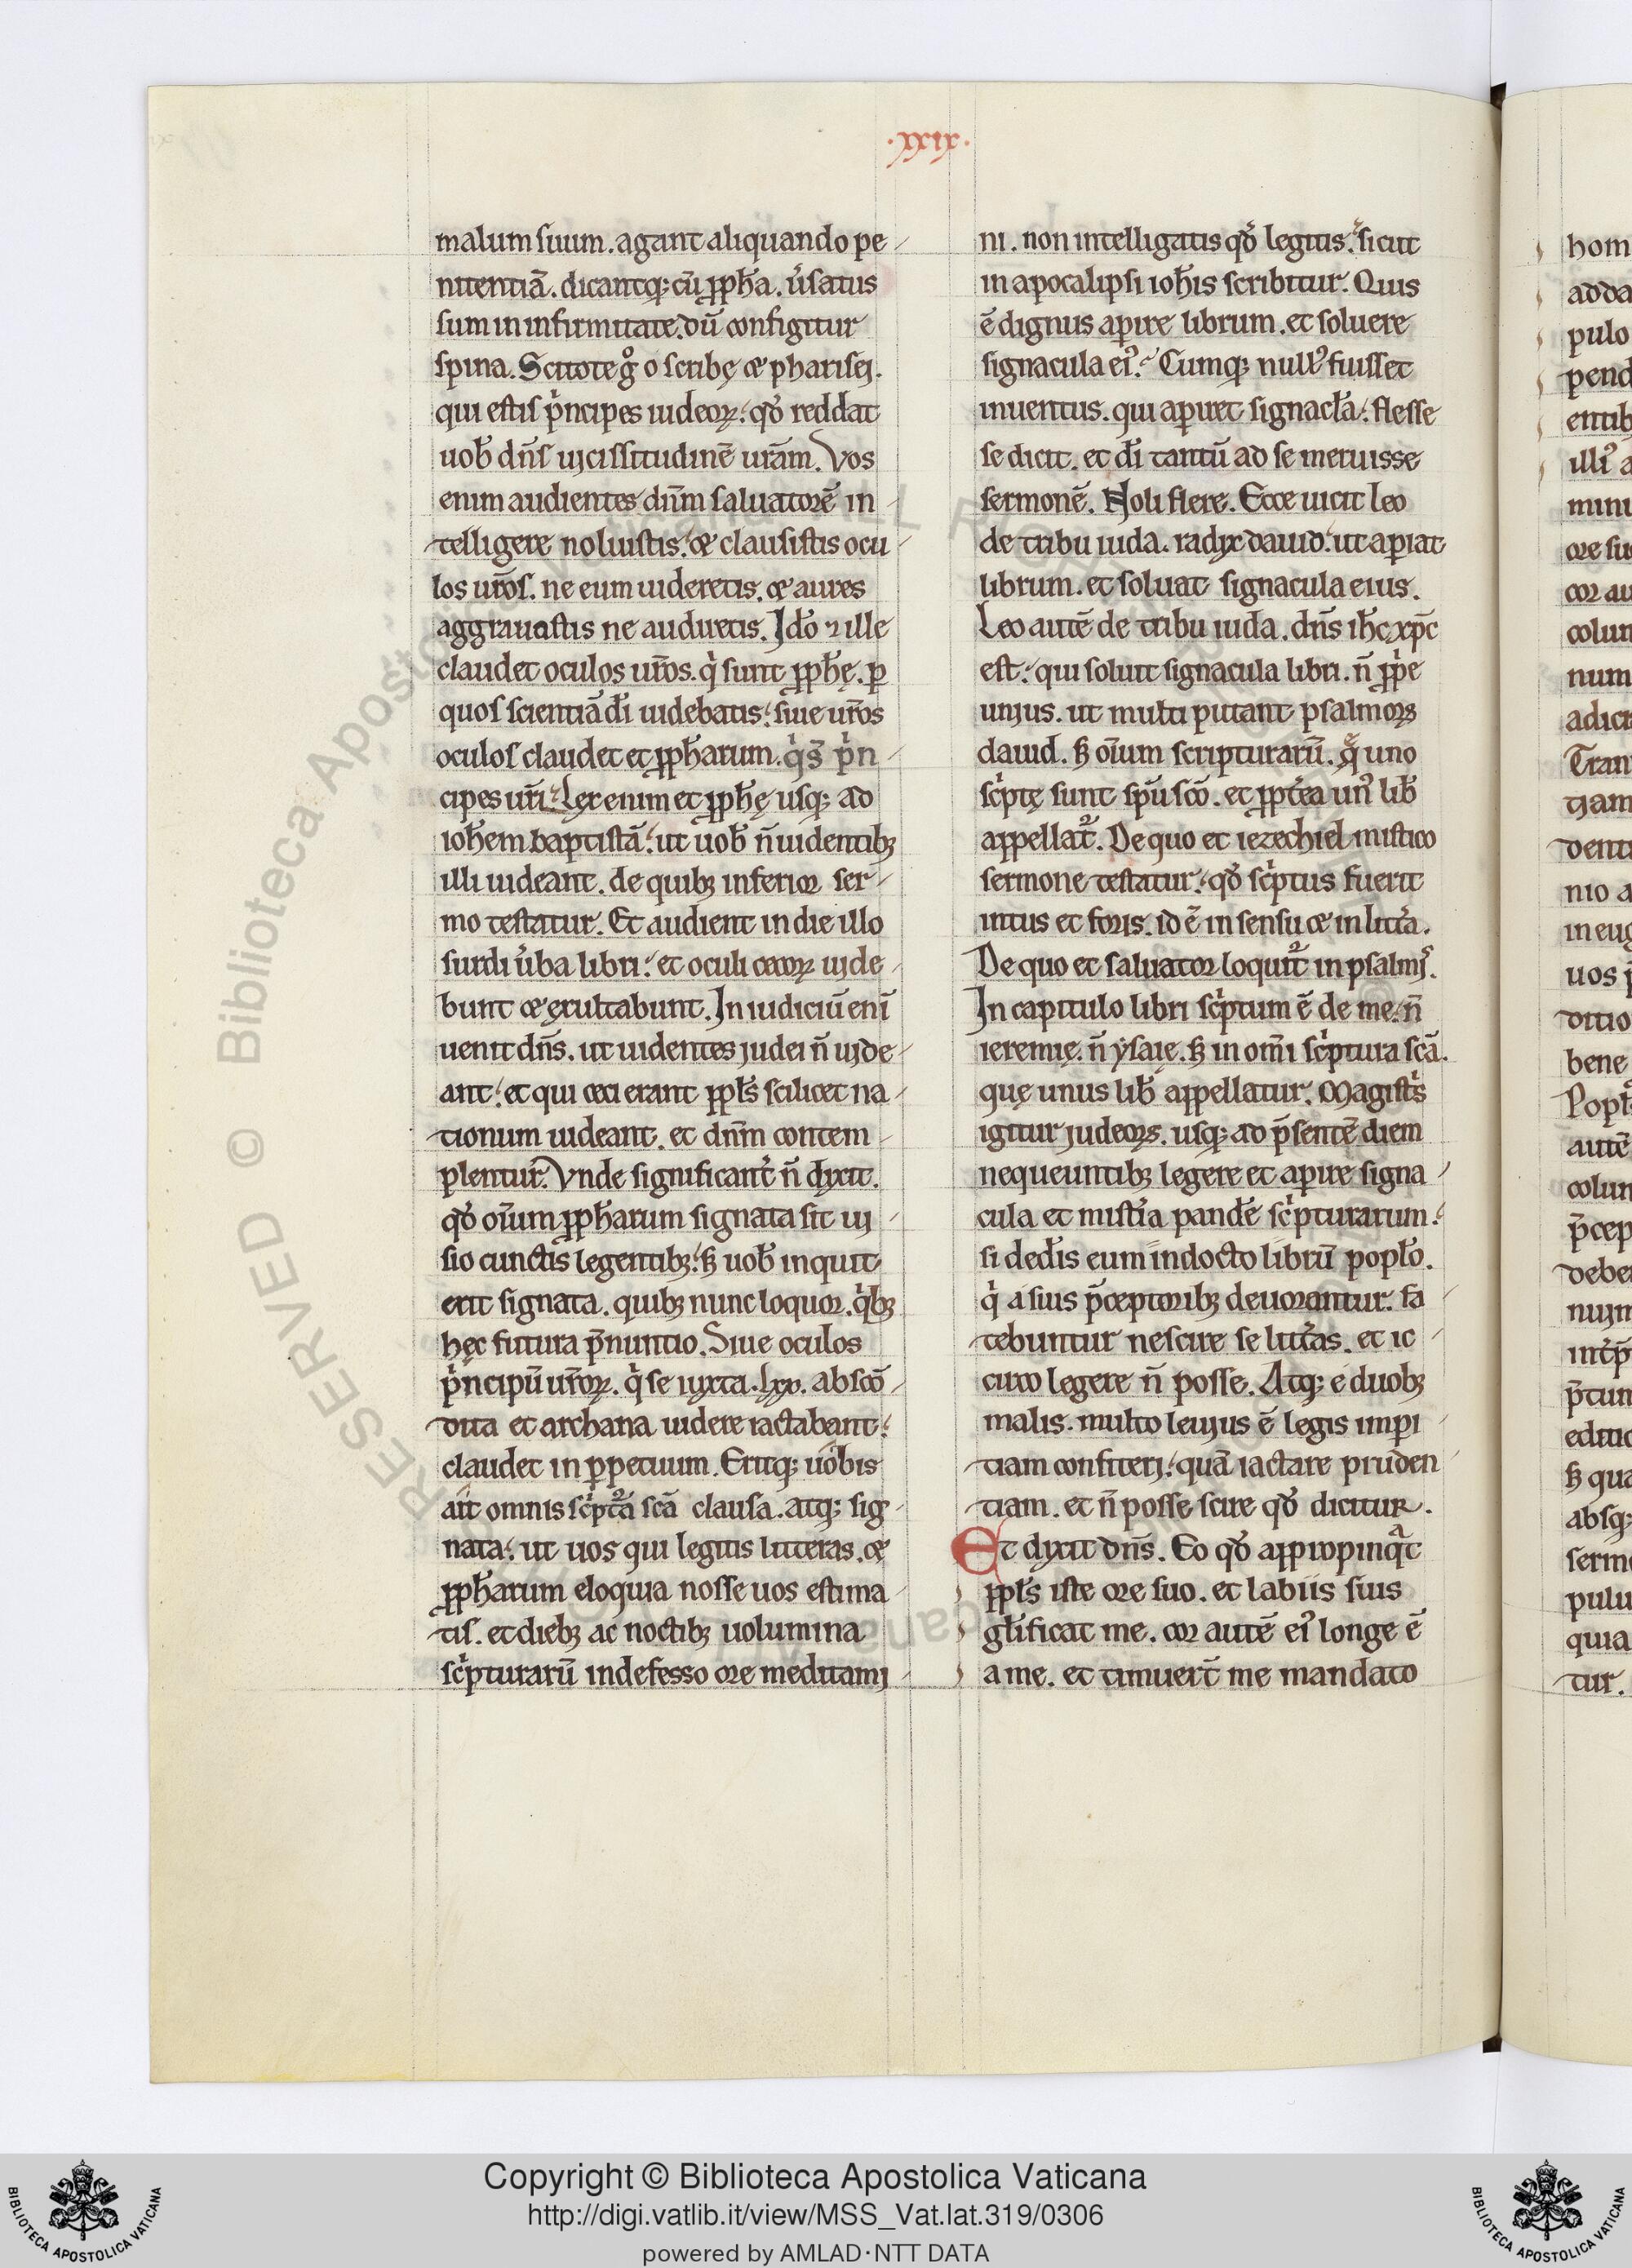 ·xxix·
malum suum. agant aliquando pe
nitentiã. dicantq; cũ ꝓph̃a. ũsatus
sum in infirmitate. dũ configitur
spina. Scitote gͦ o scribę & pharisej.
qui estis pͥncipes iudeoꝝ. qđ reddat
uob̃ dñs ujcissitudinẽ ur̃am. Vos
enim audientes dñm saluatorẽ in
telligere noluistis. & clausistis ocu
los ur̃os. ne eum uideretis. & aures
aggrauastis ne audiretis. Jdo ⁊ ille
claudet oculos ur̃os. qͥ sunt ꝓph̃ę. ꝑ
quos scientiã dĩ uidebatis. siue ur̃os
oculos claudet et ꝓph̃arum. pͥn
cipes ur̃i. Lex enim et ꝓph̃ę usq; ad
ioh̃em baptistã. ut uob̃ ñ uidentibꝫ
illi uideant. de quibꝫ inferior ser
mo testatur. Et audient in die illo
surdi ũba libri. et oculi cecoꝝ ujde
bunt & exultabunt. Jn iudiciũ enĩ
uenit dñs. ut uidentes judei ñ ujde
ant. et qui ceci erant ppl̃s scilicet na
tionum uideant. et dñm contem
plentur. Vnde significant̃ ñ dixit.
qđ oĩum ꝓph̃arum signata sit uj
sio cunctis legentibꝫ. sꝫ uob̃ inquit
erit signata. quibꝫ nunc loquor. qͥbꝫ
hęc futura p̃nuntio. Siue oculos
pͥncipũ ur̃oꝝ. qͥ se iuxta .lxx. abscõ
dita et archana uidere iactabant.
claudet in ꝑpetuum. Eritq; uobis
ait omnis scͥptã scã clausa. atq; sig
nata. ut uos qui legitis litteras. &
ꝓph̃arum eloquia nosse uos estima
tis. et diebꝫ ac noctibꝫ uolumina
scͥpturarũ indefesso ore meditamj
ni. non intelligatis qđ legitis. sicut
in apocalipsi ioh̃is scribitur. Quis
ẽ dignus aperire librum. et soluere
signacula eiꝰ. Cumq; nullꝰ fuisset
inuentus. qui aperiret signacl̃a. flesse
se dicit. et dĩ tantũ ad se meruisse
sermonẽ. Noli flere. Ecce uicit leo
de tribu iuda. radix dauid. ut aperiat
librum. et soluat signacula eius.
Leo autẽ de tribu iuda. dñs ih̃c xp̃c
est. qui soluit signacula libri. ñ ꝓpͥe
unjus. ut multi putant psalmoꝝ
dauid. sꝫ oĩum scripturarũ. q̃ uno
scͥptę sunt sp̃u sc̃o. et ꝓpt̃ea unꝰ lib̃
appellat᷑. De quo et iezechiel mistico
sermone testatur. qđ scͥptus fuerit
intus et foris. id ẽ in sensu & in litt̃a.
De quo et saluator loquit᷑ in psalmjs.
Jn capitulo libri scͥptum ẽ de me. ñ
ieremię. ñ ysaię. sꝫ in om̃i scͥptura scã.
quę unus lib̃ appellatur. Magistͥs
igitur judeoꝝ. usq; ad p̃sentẽ diem
nequeuntibꝫ legere et aperire signa
cula et mist̃ia pand̃e scͥpturarum.
si ded̃is eum indocto librũ popl̃o.
qͥ a suis p̃ceptoribꝫ deuorantur. fa
tebuntur nescire se litt̃as. et ic
circo legere ñ posse. Atq; e duobꝫ
malis. multo leujus ẽ legis imperi
tiam confiterj. quã iactare pruden
tiam. et ñ posse scire qđ dicitur.
Et dixit dñs. Eo qđ appropinqͣt
ppl̃s iste ore suo. et labiis suis
gl̃ificat me. cor autẽ eiꝰ longe ẽ
a me. et timuert̃ me mandato
Copyright © Biblioteca Apostolica Vaticana
http://digi.vatlib.it/view/MSS_Vat.lat.319/0306
powered by AMLAD·NTT DATA
BIBLIOTECA APOSTOLICA VATICANA
BIBLIOTECA APOSTOLICA VATICANA